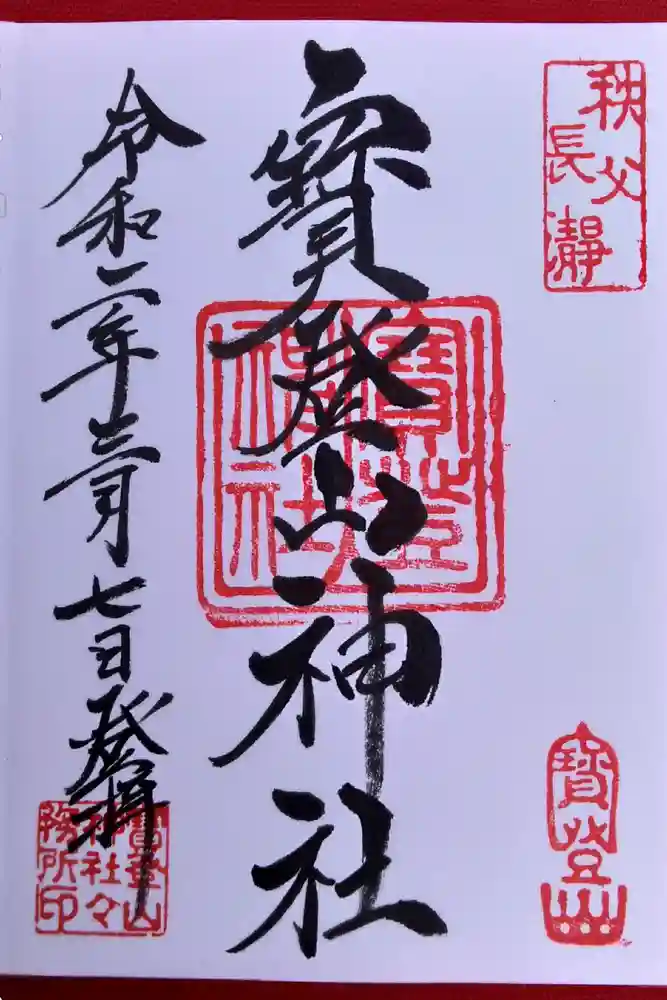 秩父
長瀞
寳登山神社
寳登山
神社
令和二年三月七日登拝
寳登山
神社々
務所印
寳登山